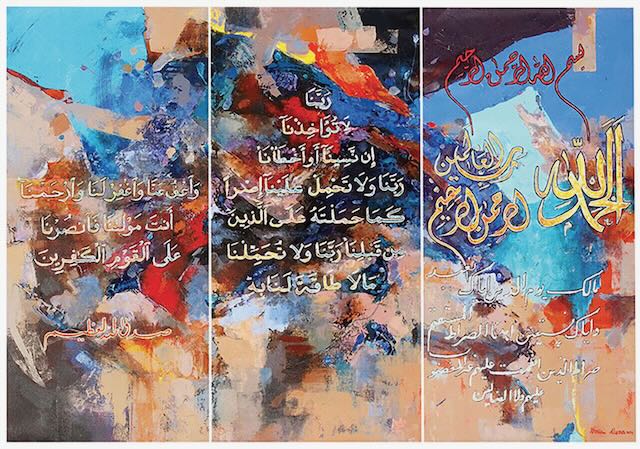 بسم الله الرحمن الرحيم
الحمد لله
رب العالمين
الرحمن الرحيم
مالك يوم الدين إياك نعبد
وإياك نستعين اهدنا الصراط المستقيم
صراط الذين أنعمت عليهم غير المغضوب
عليهم ولا الضالين
رَبَّنَا
لَا تُؤَاخِذْنَآ
إِن نَّسِينَآ أَوْ أَخْطَأْنَا
رَبَّنَا وَلَا تَحْمِلْ عَلَيْنَآ إِصْرًا
كَمَا حَمَلْتَهُ عَلَى الَّذِينَ
مِن قَبْلِنَا رَبَّنَا وَلَا تُحَمِّلْنَا
مَا لَا طَاقَةَ لَنَا بِهِ
وَاعْفُ عَنَّا وَاغْفِرْ لَنَا وَارْحَمْنَا
أَنتَ مَوْلَىٰنَا فَانصُرْنَا
عَلَى الْقَوْمِ الْكَٰفِرِينَ
صدق الله العظيم